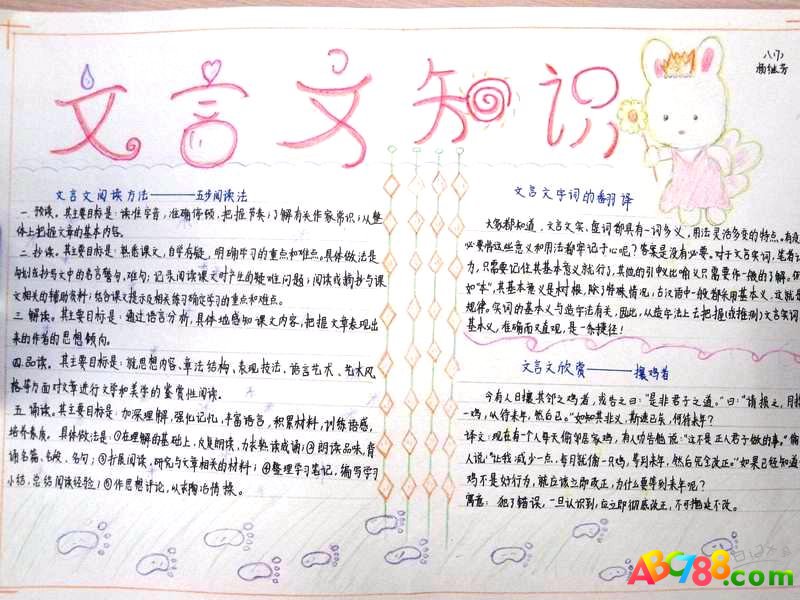 文言文知识
八(7)
杨继芳
文言文阅读方法———五步阅读法
一.预读。其主要目标是:读准字音,准确停顿,把握节奏;了解有关作家常识;从整
体上把握文章的基本内容。
二.抄读。其主要目标是:熟悉课文,自学存疑,明确学习的重点和难点。具体做法是
勾划在抄写文中的名言警句,难句;记录阅读课文时产生的疑难问题;阅读或摘抄与课
文相关的辅助资料;结合课文提示及相关练习确定学习的重点和难点。
三.解读。其主要目标是:通过语言分析,具体地感知课文内容,把握文章表现出
来的作者的思想倾向。
四.品读。其主要目标是:就思想内容、章法结构、表现技法、语言艺术、艺术风
格等方面对文章进行文学和美学的鉴赏性阅读。
五.诵读。其主要目标是:加深理解,强化记忆,丰富语言,积累材料,训练语感,
培养素质。具体做法是:①在理解的基础上,反复朗读,力求熟读成诵;②朗读品味,背
诵名篇、名段、名句;③扩展阅读,研究与文章相关的材料;④整理学习笔记,编写学习
小结,总结阅读经验;⑤作思想讨论,从求陶冶情操。
文言文字词的翻译
大家都知道,文言文实、虚词都具有一词多义,用法灵活多变的特点。有没
必要将这些意义和用法都牢记于心呢?答案是没有必要。对于文言实词,笔者认
为,只需要记住其基本意义就行了,其他的引申义比喻义只需要作一般的了解。例
如“本”,其基本意义是树根,除了特殊情况,古汉语中一般都采用基本义,这就是
规律。实词的基本义与造字法有关,因此,从造字法上去把握(或推测)文言实词
基本义,准确而又直观,是一条捷径!
文言文欣赏———攘鸡者
今有人日攘其邻之鸡者,或告之曰:“是非君子之道。”曰:“请损之,月攘
一鸡,以待来年,然后已。”如知其非义,斯速已矣,何待来年?
译文:现在有一个人每天偷邻居家鸡,有人劝告他说:“这不是正人君子做的事。”偷
人说:“让我减少一点,每月就偷一只鸡,等到来年,然后完全改正。”如果已经知道
鸡不是好行为,就应该立即改正,为什么要等到来年呢?
寓意:犯了错误,一旦认识到,应立即彻底改正,不可拖延不改。
ABC788.com